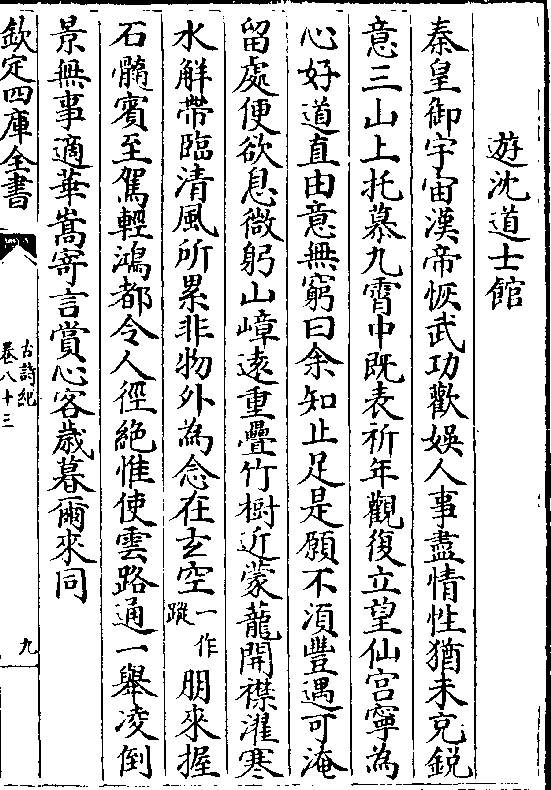 遊沈道士館
秦皇御宇宙漢帝恢武功歡娛人事盡情性猶未充銳
意三山上托慕九霄中既表祈年觀復立望仙宮寧為
心好道直由意無窮曰余知止足是願不湏豐遇可淹
留處便欲息微躬山嶂逺重疊竹樹近蒙蘢開襟濯寒
水解帶臨清風所累非物外為念在𤣥空一作蹤朋來握
石髓賓至駕輕鴻都令人徑絶惟使雲路通一舉凌倒
景無事適華嵩寄言賞心客歳暮爾來同
欽定四庫全書
古詩紀
卷八十三
九